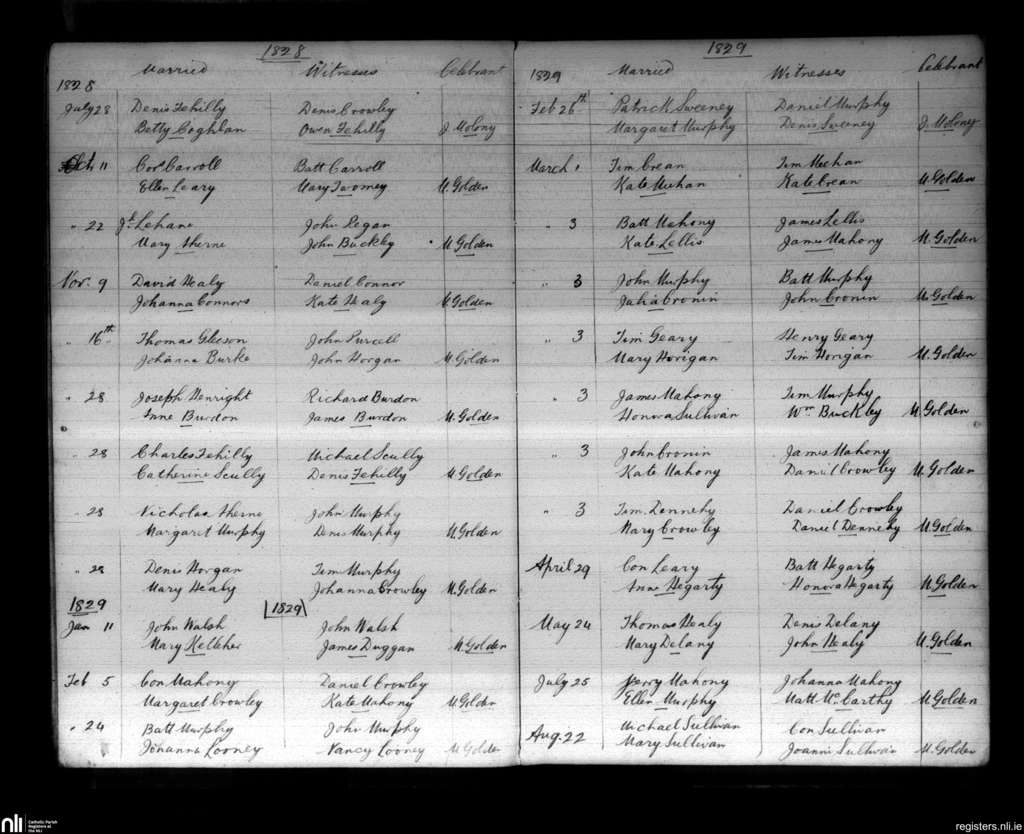 1828
Married Witnesses Celebrant
1828
July 28 Denis Fehilly Denis Crowley
Betty Coghlan Owen Fehilly J. Molony
Oct 11 Cors Carroll Batt Carroll
Ellen Leary Mary Twomey M Golden
" 22 Js Lehane John Regan
Mary Aherne John Buckley M Golden
Nov. 9 David Healy Daniel Connor
Johanna Connors Kate Healy M Golden
" 16th Thomas Gleeson John Purcell
Johanna Burke John Horgan M. Golden
" 28 Joseph Henright Richard Burdon
Anne Burdon James Burdon M. Golden
" 28 Charles Fehilly Michael Scully
Catherine Scully Denis Fehilly M Golden
" 28 Nicholas Aherne John Murphy
Margaret Murphy Denis Murphy M. Golden
" 28 Denis Horgan Tim Murphy
Mary Healy Johanna Crowley M. Golden
1829 1829
Jan 11 John Walsh John Walsh
Mary Kelleher James Duggan M Golden
Feb 5 Con Mahony Daniel Crowley
Margaret Crowley Kate Mahony M. Golden
" 24 Batt Murphy John Murphy
Johanna Looney Nancy Looney M Golden
1829
1829 Married Witnesses Celebrant
Feb 26th Patrick Sweeney Daniel Murphy
Margaret Murphy Denis Sweeney J. Moloney
March 1 Tim Crean Tim Meehan
Kate Meehan Kate Crean M Golden
" 3 Batt Mahony James Lellis
Kate Lellis James Mahony M. Golden
" 3 John Murphy Batt Murphy
Julia Cronin John Cronin M. Golden
" 3 Tim Geary Henry Geary
Mary Horigan Tim Horigan M. Golden
" 3 James Mahony Tim Murphy
Honora Sullivan Wm Buckley M. Golden
" 3 John Cronin James Mahony
Kate Mahony Daniel Crowley M Golden
" 3 Tim Dennehy Daniel Crowley
Mary Crowley Daniel Denneby M Golden
April 29 Con Leary Batt Hegarty
Anne Hegarty Honora Hegarty M Golden
May 24 Thomas Healy Denis Delany
Mary Delany John Healy M. Golden
July 25 Jerry Mahony Johanna Mahony
Ellen Murphy Matt McCarthy M Golden
Aug. 22 Michael Sullivan Con Sullivan
Mary Sullivan Joanna Sullivan M. Golden
nli Catholic Parish
Registers at
the NLI
registers.nli.ie